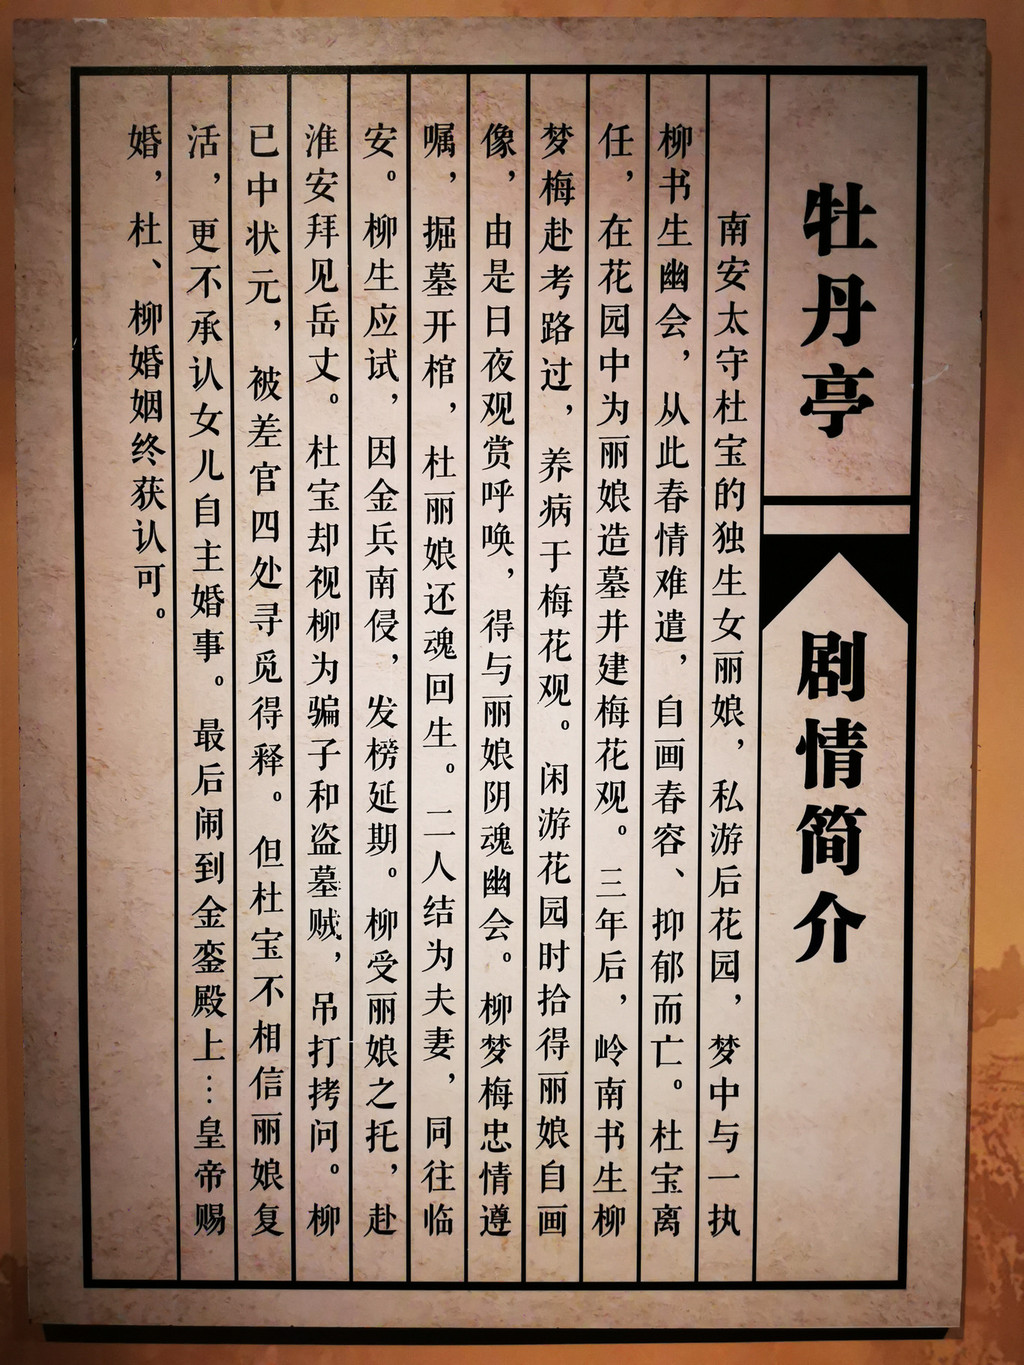 牡丹亭
剧情简介
南安太守杜宝的独生女丽娘，私游后花园，梦中与一执
柳书生幽会，从此春情难遣，自画春容、抑郁而亡。杜宝离
任，在花园中为丽娘造墓并建梅花观。三年后，岭南书生柳
梦梅赴考路过，养病于梅花观。闲游花园时拾得丽娘自画
像，由是日夜观赏呼唤，得与丽娘阴魂幽会。柳梦梅忠情遵
嘱，掘墓开棺，杜丽娘还魂回生。二人结为夫妻，同往临
安。柳生应试，因金兵南侵，发榜延期。柳受丽娘之托，赴
淮安拜见岳丈。杜宝却视柳为骗子和盗墓贼，吊打拷问。柳
已中状元，被差官四处寻觅得释。但杜宝不相信丽娘复
活，更不承认女儿自主婚事。最后闹到金銮殿上…皇帝赐
婚，杜、柳婚姻终获认可。